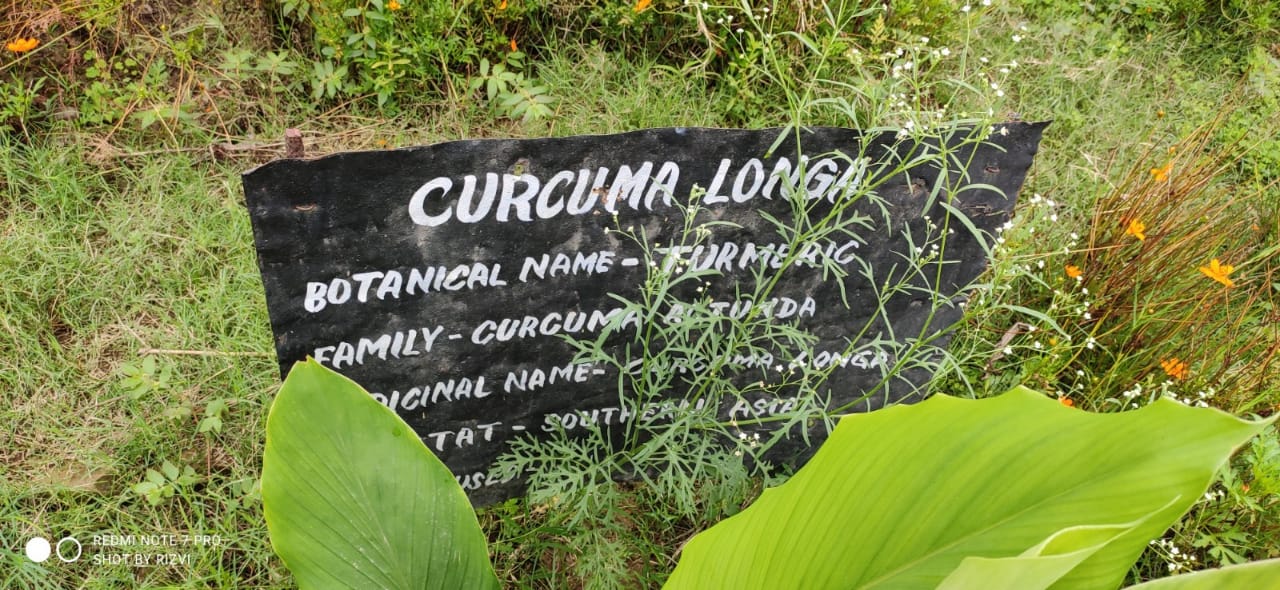 CURCUMA LONGA
BOTANICAL NAME - TURMERIC
FAMILY - CURCUMA
DICINAL NAME - CURCUMA LONGA
TAT - SOUTHERN ASIA
USED
REDMI NOTE 7 PRO
SHOT BY RIZVI